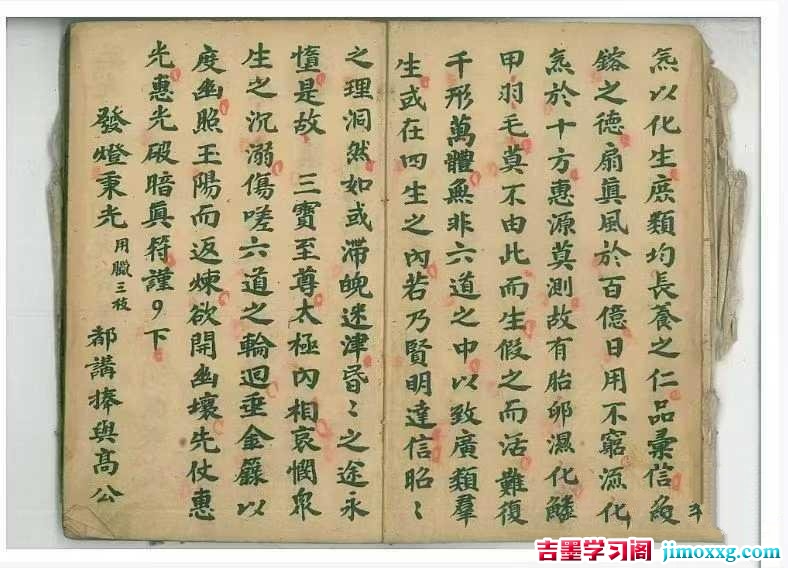 炁以化生庶類均長養之仁品彙信籨
鎔之德扇眞風於百億日用不窮流化
炁於十方惠源莫測故有胎卵濕化鱗
甲羽毛莫不由此而生假之而活難復
千形萬體無非六道之中以致廣類羣
生或在四生之內若乃賢明達信昭〻
之理洞然如或滯魄迷津昏〻之途永
墮是故 三寶至尊太極內相哀憫眾
生之沉溺傷嗟六道之輪迴垂金籙以
度幽照王陽而返煉欲開幽壤先仗惠
光惠光破暗眞符謹9下
發燈秉光 用臘三枝 都講捧與髙公
吉墨学习阁 jimoxxg.com